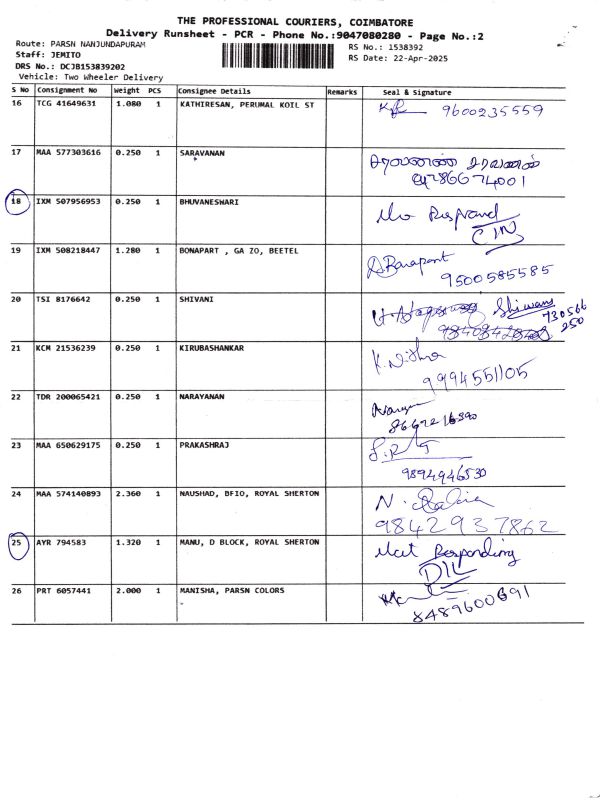 THE PROFESSIONAL COURIERS, COIMBATORE
Delivery Runsheet - PCR - Phone No.:9047080280 - Page No.:2
Route: PARSN NANJUNDAPURAM
RS No.: 1538392
Staff: JEMITO
RS Date: 22-Apr-2025
DRS No.: DCJB153839202
Vehicle: Two Wheeler Delivery
S No Consignment No Weight PCS Consignee Details Remarks Seal & Signature
16 TCG 41649631 1.080 1 KATHIRESAN, PERUMAL KOIL ST
9600235559
17 MAA 577303616 0.250 1 SARAVANAN
18 IXM 507956953 0.250 1 BHUVANESWARI
No Respond
19 IXM 508218447 1.280 1 BONAPART , GA ZO, BEETEL
Bonapart
9500585585
20 TSI 8176642 0.250 1 SHIVANI
Shivani
730566
250
21 KCM 21536239 0.250 1 KIRUBASHANKAR
K. Nitha
9994551105
22 TDR 200065421 0.250 1 NARAYANAN
23 MAA 650629175 0.250 1 PRAKASHRAJ
9894946530
24 MAA 574140893 2.360 1 NAUSHAD, BFIO, ROYAL SHERTON
9842937862
25 AYR 794583 1.320 1 MANU, D BLOCK, ROYAL SHERTON
Not Responding
26 PRT 6057441 2.000 1 MANISHA, PARSN COLORS
8489600691